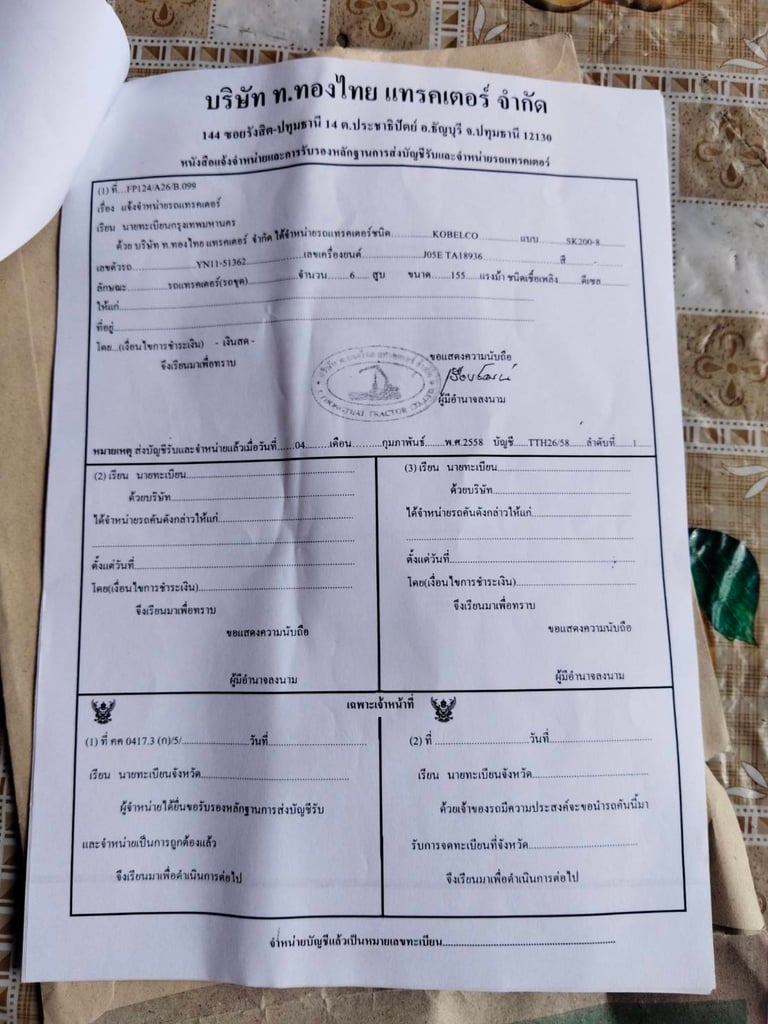 บริษัท ท.ทองไทย แทรคเตอร์ จำกัด
144 ซอยรังสิต-ปทุมธานี 14 ต.ประชาธิปัตย์ อ.ธัญบุรี จ.ปทุมธานี 12130
หนังสือแจ้งจำหน่ายและการรับรองหลักฐานการส่งบัญชีรับและจำหน่ายรถแทรคเตอร์
(1) ที่...FP124/A26/B.099
เรื่อง แจ้งจำหน่ายรถแทรคเตอร์
เรียน นายทะเบียนกรุงเทพมหานคร
ด้วย บริษัท ท.ทองไทย แทรคเตอร์ จำกัด ได้จำหน่ายรถแทรคเตอร์ชนิด............KOBELCO............แบบ........SK200-8........
เลขตัวรถ............YN11-51362............เลขเครื่องยนต์............J05E TA18936............สี............
ลักษณะ............รถแทรคเตอร์(รถขุด)............จำนวน......6......สูบ ขนาด......155......แรงม้า ชนิดเชื้อเพลิง......ดีเซล......
ให้แก่............
ที่อยู่............
โดย...(เงื่อนไขการชำระเงิน) - เงินสด -
จึงเรียนมาเพื่อทราบ
ขอแสดงความนับถือ
T.THONGTHAI TRACTOR CO.,LTD.
ผู้มีอำนาจลงนาม
หมายเหตุ ส่งบัญชีรับและจำหน่ายแล้วเมื่อวันที่......04.........เดือน.........กุมภาพันธ์......พ.ศ.2558 บัญชี......TTH26/58......ลำดับที่......1......
(2) เรียน นายทะเบียน............
ด้วยบริษัท............
ได้จำหน่ายรถคันดังกล่าวให้แก่............
ตั้งแต่วันที่............
โดย(เงื่อนไขการชำระเงิน)............
จึงเรียนมาเพื่อทราบ
ขอแสดงความนับถือ
ผู้มีอำนาจลงนาม
(3) เรียน นายทะเบียน............
ด้วยบริษัท............
ได้จำหน่ายรถคันดังกล่าวให้แก่............
ตั้งแต่วันที่............
โดย(เงื่อนไขการชำระเงิน)............
จึงเรียนมาเพื่อทราบ
ขอแสดงความนับถือ
ผู้มีอำนาจลงนาม
เฉพาะเจ้าหน้าที่
(1) ที่ คค 0417.3 (ก)/5/............วันที่............
เรียน นายทะเบียนจังหวัด............
ผู้จำหน่ายได้ยื่นขอรับรองหลักฐานการส่งบัญชีรับ
และจำหน่ายเป็นการถูกต้องแล้ว
จึงเรียนมาเพื่อดำเนินการต่อไป
(2) ที่ ............วันที่............
เรียน นายทะเบียนจังหวัด............
ด้วยเจ้าของรถมีความประสงค์จะขอนำรถคันนี้มา
รับการจดทะเบียนที่จังหวัด............
จึงเรียนมาเพื่อดำเนินการต่อไป
จำหน่ายบัญชีแล้วเป็นหมายเลขทะเบียน............